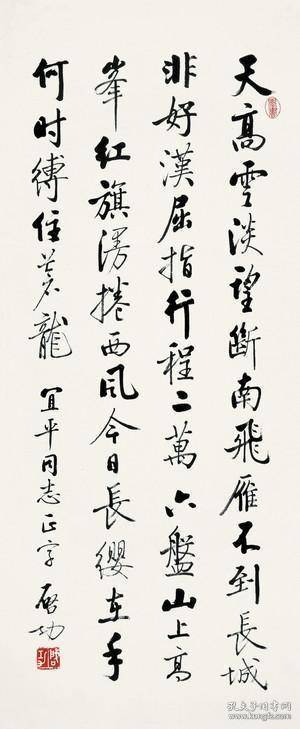 天高雲淡望斷南飛雁不到長城
非好漢屈指行程二萬六盤山上高
峯紅旗漫捲西風今日長纓在手
何时縛住蒼龍 宜平同志正字 啓功
孔夫子旧书网